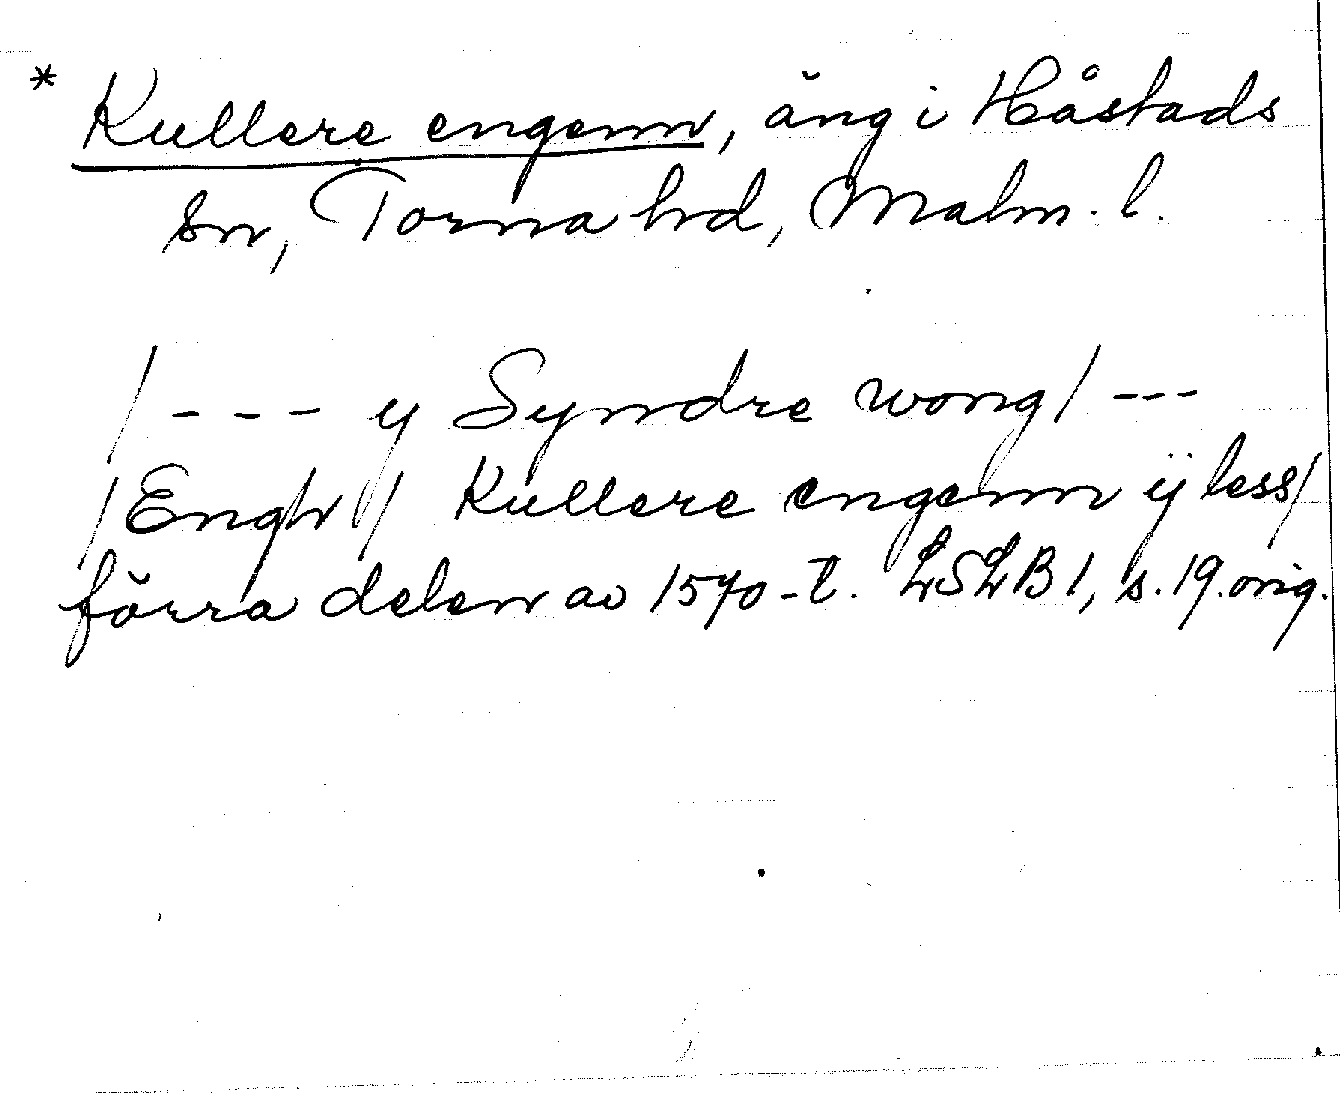 * Kullere engenn, äng i Håstads
sn, Torna hd, Malm. l.
/--- y Syndre wong/ ---
/Engh// Kullere engenn ÿ less/
förra delen av 1570-t. LSLB 1, s. 19. orig.